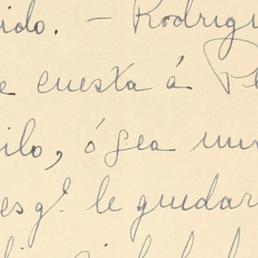 ido. — Rodrigu
e cuesta á Pe
ilo, ó sea un
es q.e le quedar